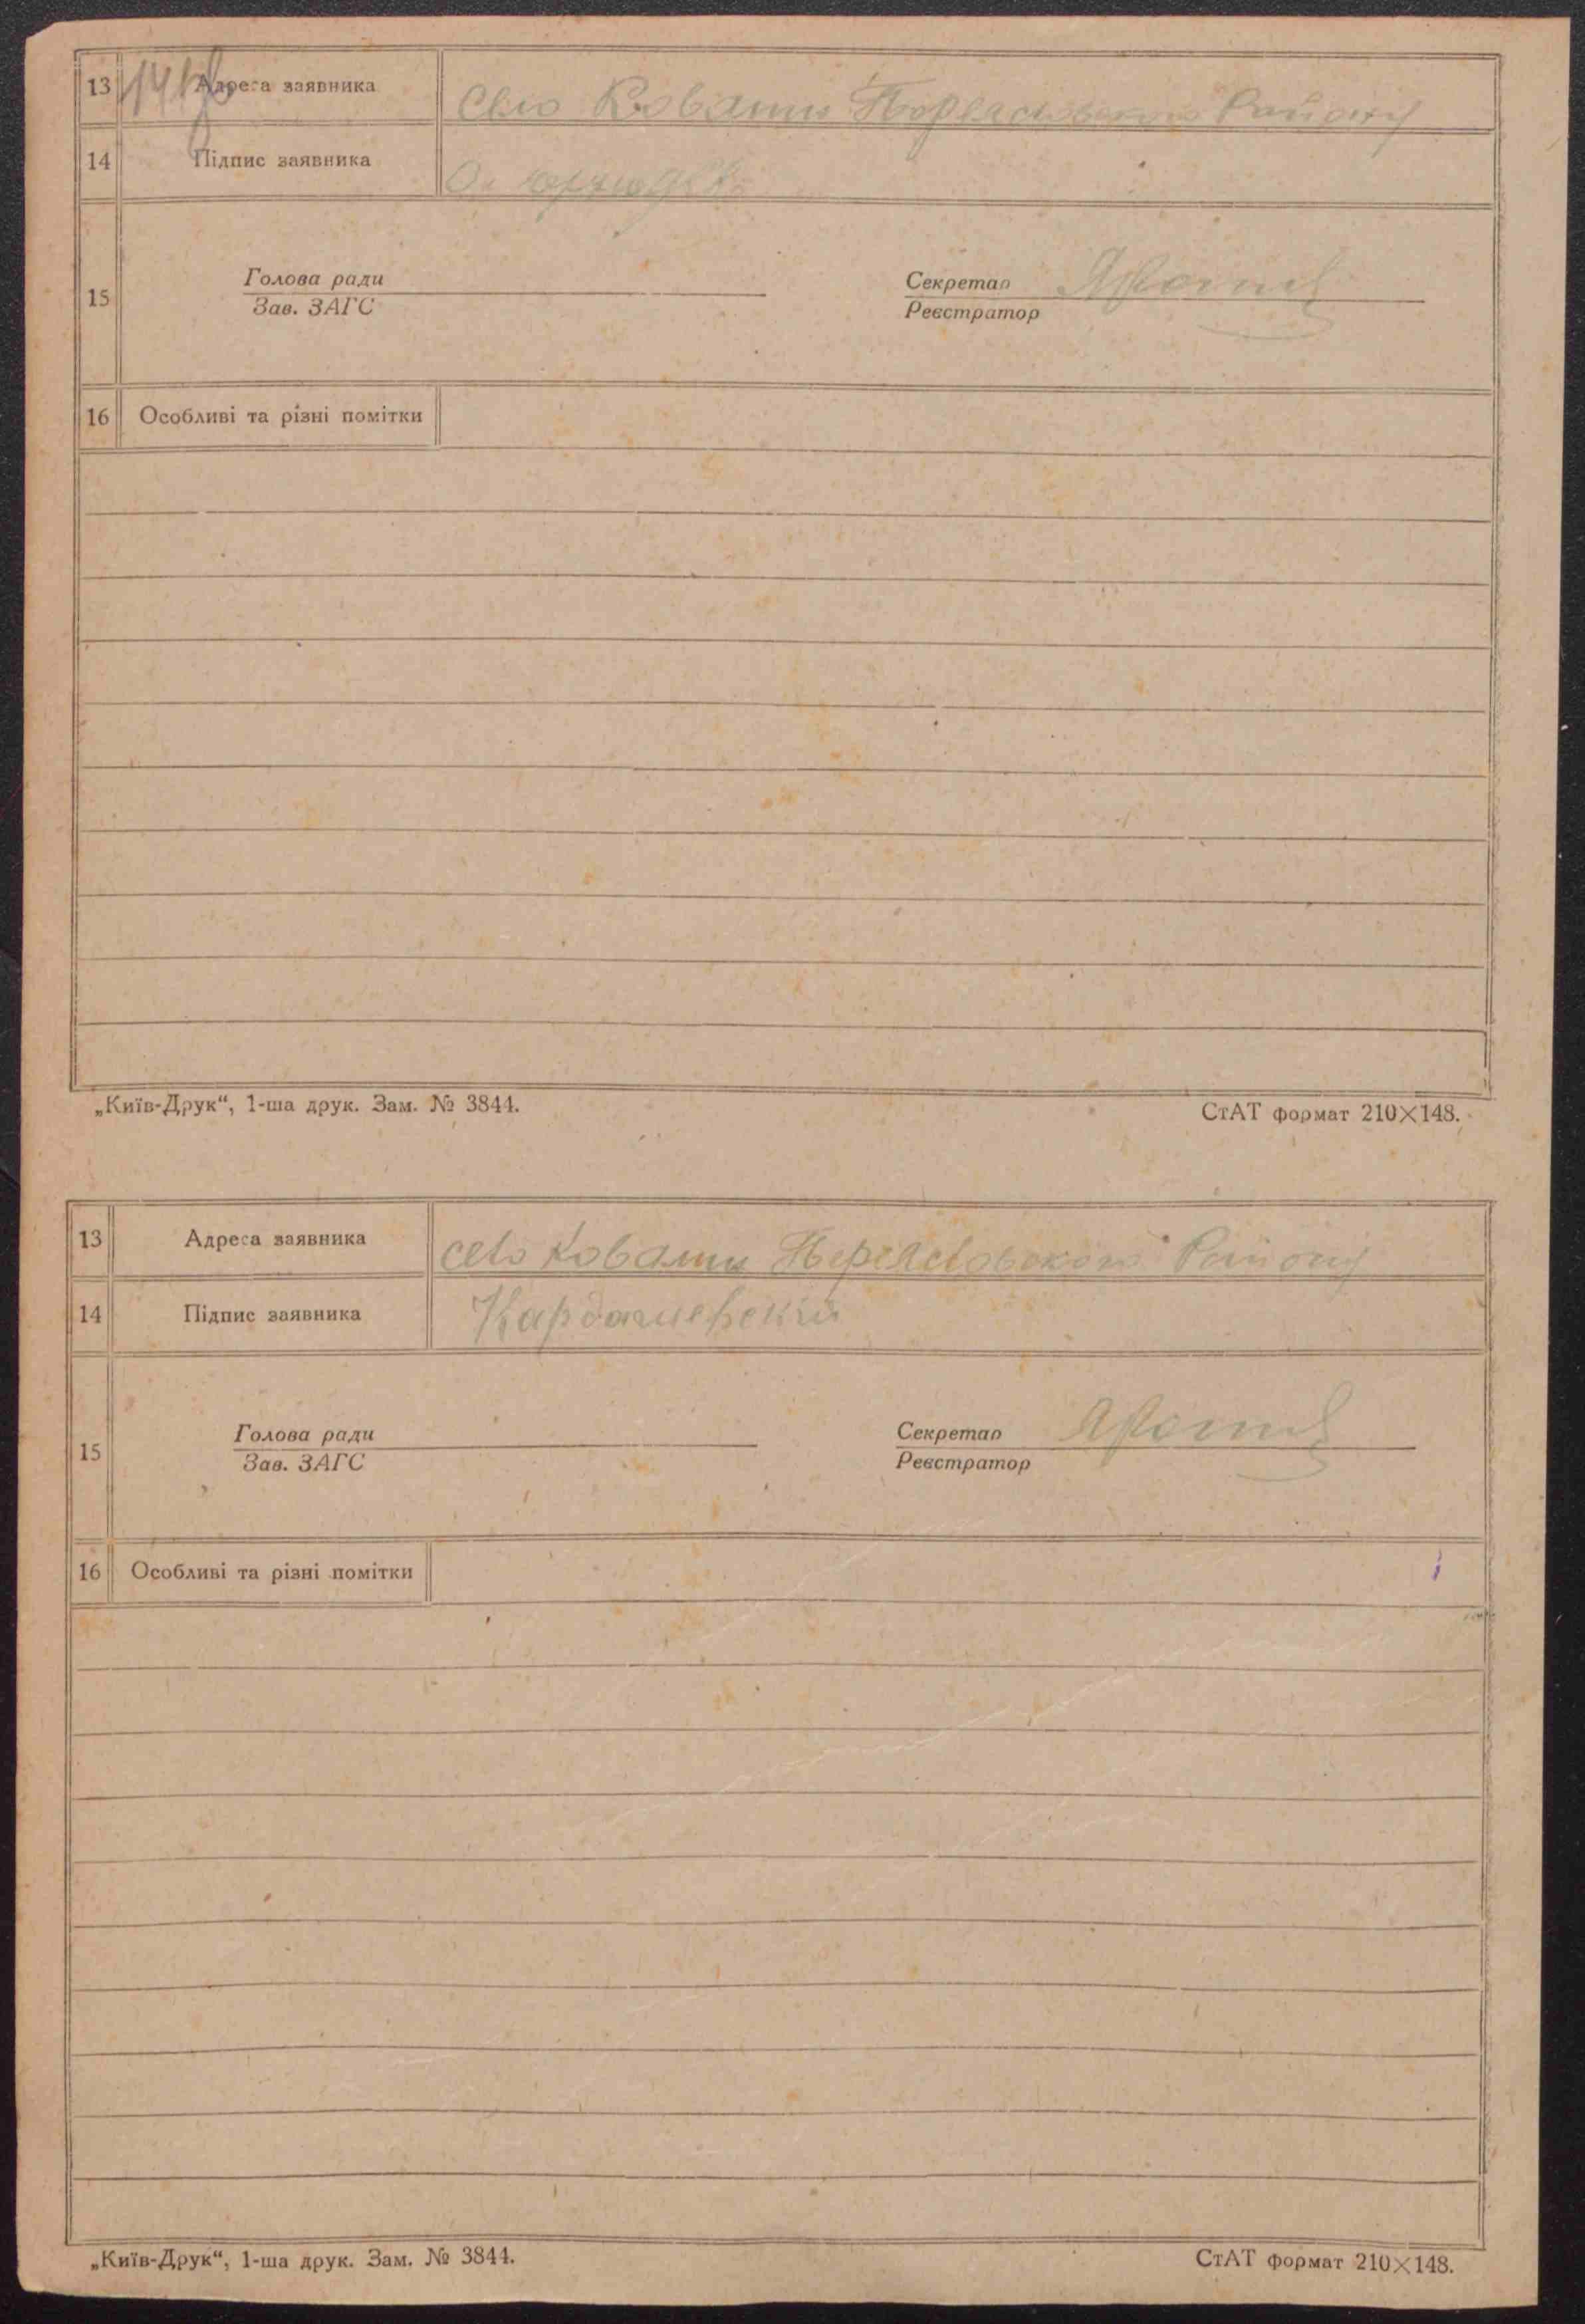 13 Адреса заявника Село Ковалин Переяславского Району
14 Підпис заявника
15 Голова ради Секретар
Зав. ЗАГС Реєстратор
16 Особливі та різні помітки
„Київ-Друк“, 1-ша друк. Зам. № 3844. СтАТ формат 210×148.
13 Адреса заявника село Ковалин Переяславского Району
14 Підпис заявника Кардашевский
15 Голова ради Секретар
Зав. ЗАГС Реєстратор
16 Особливі та різні помітки
„Київ-Друк“, 1-ша друк. Зам. № 3844. СтАТ формат 210×148.